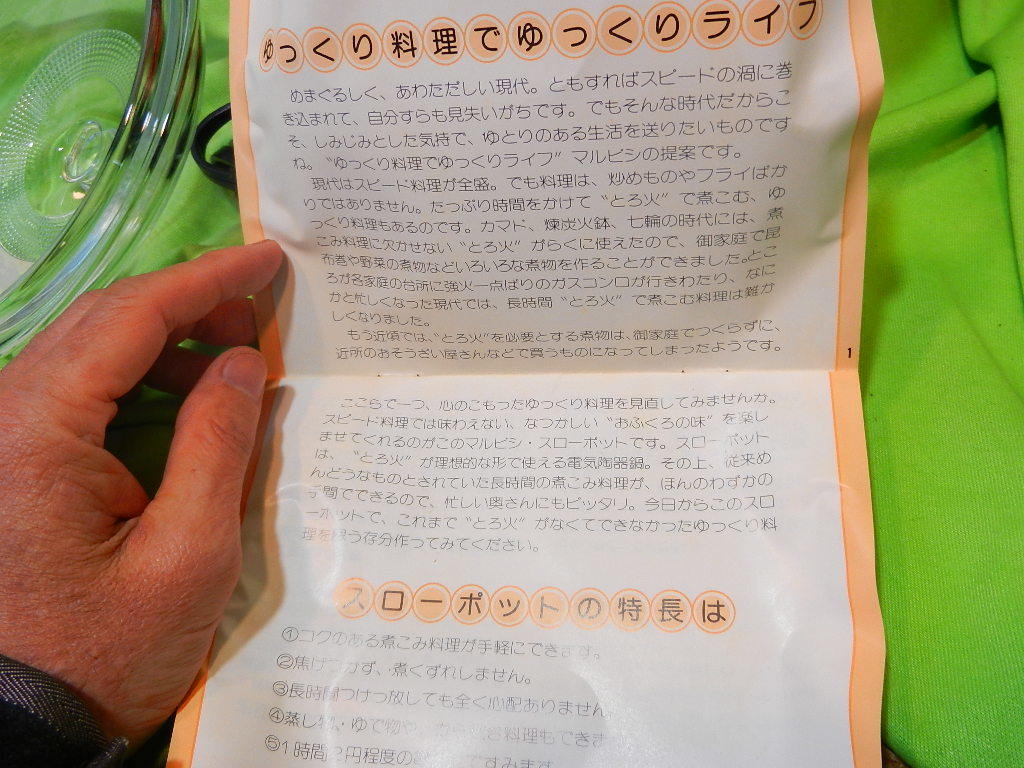 ゆっくり料理でゆっくりライフ
めまぐるしく、あわただしい現代。ともすればスピードの渦に巻
き込まれて、自分すらも見失いがちです。でもそんな時代だからこ
そ、しみじみとした気持で、ゆとりのある生活を送りたいものです
ね。“ゆっくり料理でゆっくりライフ”マルビシの提案です。
現代はスピード料理が全盛。でも料理は、炒めものやフライばか
りではありません。たっぷり時間をかけて“とろ火”で煮こむ、ゆ
っくり料理もあるのです。カマド、煉炭火鉢、七輪の時代には、煮
こみ料理に欠かせない“とろ火”がらくに使えたので、御家庭で昆
布巻や野菜の煮物などいろいろな煮物を作ることができました。とこ
ろが各家庭の台所に強火一点ばりのガスコンロが行きわたり、なに
かと忙しくなった現代では、長時間“とろ火”で煮こむ料理は難か
しくなりました。
もう近頃では、“とろ火”を必要とする煮物は、御家庭でつくらずに、
近所のおそうざい屋さんなどで買うものになってしまったようです。
1
ここらで一つ、心のこもったゆっくり料理を見直してみませんか。
スピード料理では味わえない、なつかしい“おふくろの味”を楽し
ませてくれるのがこのマルビシ・スローポットです。スローポット
は、“とろ火”が理想的な形で使える電気陶器鍋。その上、従来め
んどうなものとされていた長時間の煮こみ料理が、ほんのわずかの
手間でできるので、忙しい奥さんにもピッタリ。今日からこのスロ
ーポットで、これまで“とろ火”がなくてできなかったゆっくり料
理を思う存分作ってみてください。
スローポットの特長は
①コクのある煮こみ料理が手軽にできます。
②焦げつかず、煮くずれしません。
③長時間つけっ放しても全く心配ありません
④蒸し物・ゆで物や、 料理もできま
⑤1時間2円程度の ですみます